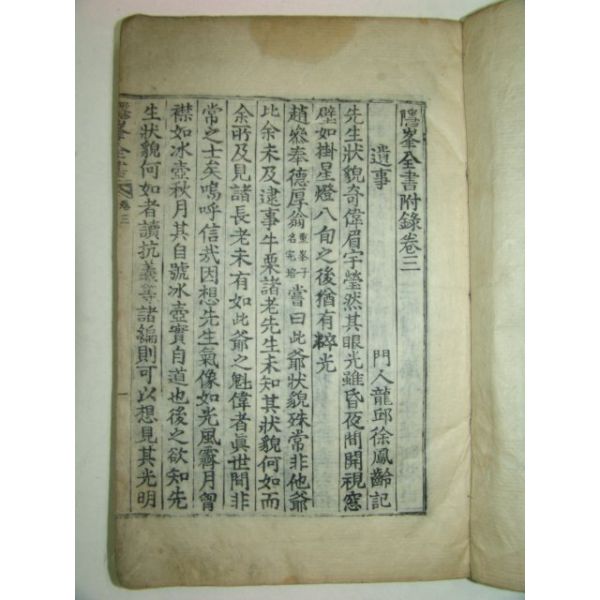 隱峯全書附錄卷三
遺事
門人龍邱徐鳳齡記
先生狀貌奇偉眉宇瑩然其眼光雖昏夜間開視窓
壁如掛星燈八旬之後猶有粹光
趙叅奉德厚翁重峯子名宅瑜嘗曰此爺狀貌殊常非他爺
比余未及逮事牛栗諸老先生未知其狀貌何如而
余所及見諸長老未有如此爺之魁偉者眞世間非
常之士矣嗚呼信哉因想先生氣像如光風霽月胷
襟如冰壺秋月其自號冰壺實自道也後之欲知先
生狀貌何如者讀抗義等諸編則可以想見其光明
隱峯全書 卷三 一